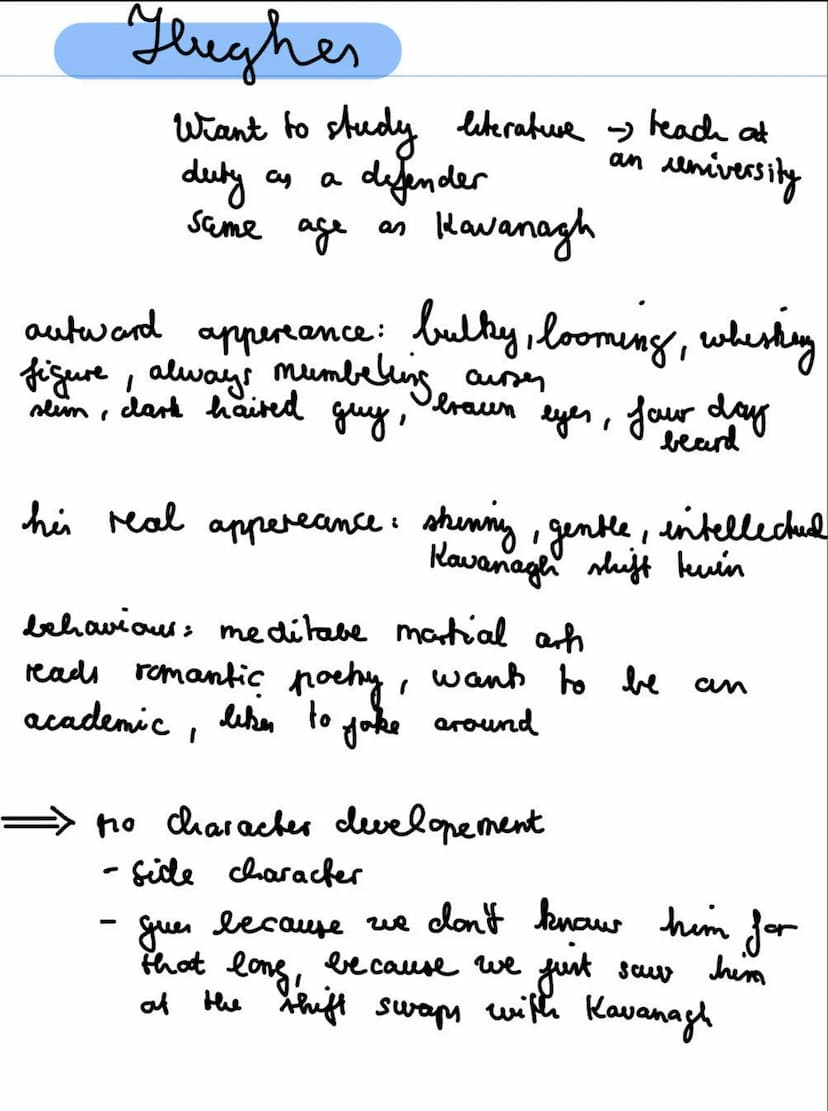 Hughes
Want to study literature → teach at
an university
duty as a defender
same age as Kavanagh
outward appereance: bulky, looming, whiskey
figure, always mumbeling curses
slim, dark haired guy, brown eyes, four day
beard
his real appereance: skinny, gentle, intellectual
Kavanagh shift twin
behaviour: meditate martial arts
reads romantic poetry, wants to be an
academic, likes to joke around
⇒ no character developement
- side character
- gues because we don't know him for
that long, because we just saw him
at the shift swaps with Kavanagh